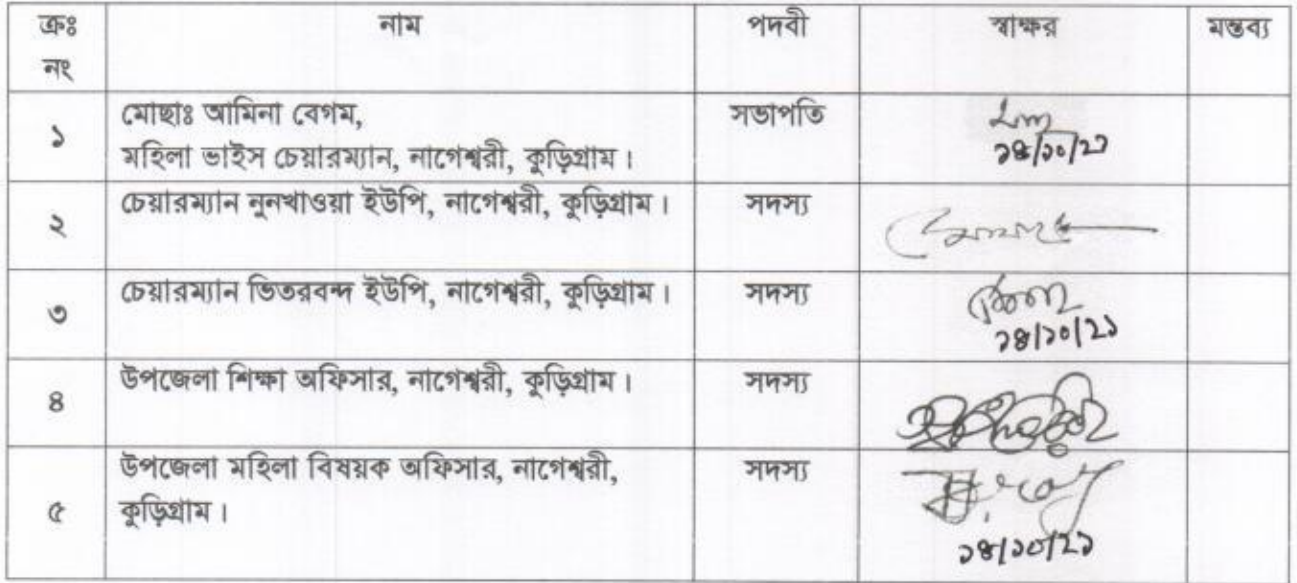 ক্রঃ নং নাম পদবী স্বাক্ষর মন্তব্য
১ মোছাঃ আমিনা বেগম, সভাপতি
মহিলা ভাইস চেয়ারম্যান, নাগেশ্বরী, কুড়িগ্রাম। ১৪/১০/২১
২ চেয়ারম্যান নুনখাওয়া ইউপি, নাগেশ্বরী, কুড়িগ্রাম। সদস্য
৩ চেয়ারম্যান ভিতরবন্দ ইউপি, নাগেশ্বরী, কুড়িগ্রাম। সদস্য
১৪/১০/২১
৪ উপজেলা শিক্ষা অফিসার, নাগেশ্বরী, কুড়িগ্রাম। সদস্য
৫ উপজেলা মহিলা বিষয়ক অফিসার, নাগেশ্বরী, সদস্য
কুড়িগ্রাম।
১৪/১০/২১